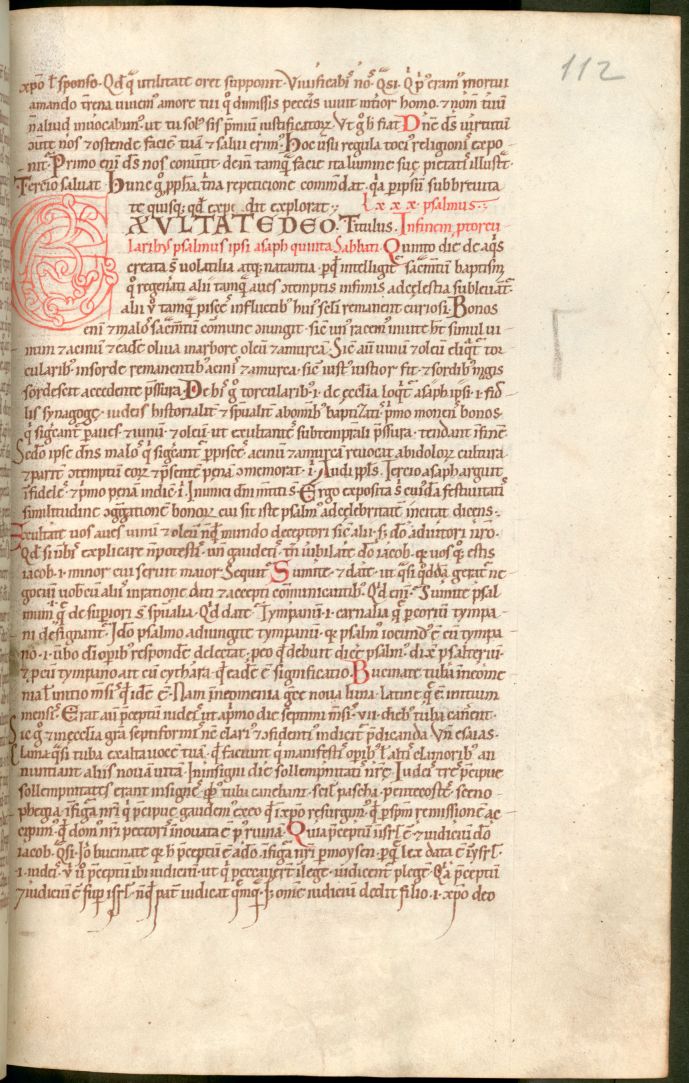 112
xp̄o ł sponso. Qđ q̄ utilitate oret supponit. Viuificabiſ noſ. Qͣsi. Qͥ pͥꝰ eramꝰ mortui
amando trena uiuemꝰ amore tui qͥ dimissis peccͣtis uiuit int̓ior homo. ⁊ nom̄ tuū
inuocabimꝰ. ut tu solꝰ sis p̄miū iustificatoꝝ. Vt g̊ h̓ fiat Dn̄e dſ̄ uirtutū
ꝯuͥte nos ⁊ ostende faciē tuā ⁊ salui erimꝰ. Hoc usu regula tociꝰ religioniſ expo
nit. Primo eni dſ̄ nos conuͥtit. dein tamqͣ facie ita lumine suę pietatiſ illustͣt.
Tercio saluat. Hunc g̊ ꝓph̄a trina repeticione commdat. qͥa p ipsū sub breuita
te quisq; qđ expedit explorat ⁊ Lxxx. psalmus.
EXVLTATE DEO. Titulus. In finem p torcu
laribꝰ psalmus ipsi asaph quinta Sabbati. Quinto die de aqͥs
creata s̄ uolatilia atq; natantia. ꝑ qđ intelligit sacm̄tū baptismi
qͦ regen̓ati alii tamqͣ aues ꝯtemptis infimis ad cęlestia subleuant̄
alii u̓ tamqͣ pisces in fluctibꝰ huiꝰ seli remanent curiosi. Bonos
eni ⁊ maloſ sacm̄tū cōmune ꝯiungit. sic un racemꝰ in uite ht̄ simul ui
num ⁊ acinū ⁊ eadē oliua in arbore oleū ⁊ amurcā. Sic aū uinū ⁊ oleū eliqͣt̄ tor
cularibꝰ in sorde remanentibꝰ acinͥſ ⁊ amurca. sic iustꝰ iustior fit. ⁊ sordibꝰ magis
sordescit accedente p̄ssura. De hiſ g̊ torcularibꝰ .i. de ęcclia loqͥt̄ asaph ipsi .i. fid
lis synagoge. iudeis historialit̓ ⁊ spualit̓ ab omibꝰ baptizati. pͥmo monenſ bonos
qͥ sigͥcant̄ p aues ⁊ uinū ⁊ oleū ut exultanteſ sub temꝑali p̄ssura. tendant in finē.
Sedo ipse dn̄s maloſ qͥ sigͥcant̄ p pisceſ. acinū ⁊ amurcā reuocat ab idoloꝝ cultura
⁊ patrū ꝯtemptū eoꝝ ⁊ p̄sentē penā ꝯmemorat. i. Audi ppl̄s. Tercio asaph arguit
infideleſ. ⁊ pͥmo penā indicͣt. i. Inimici dn̄i mtiti s̄. Ergo exposita s̓ cuidā festiuitatiſ
similitudine ꝯg̓gatione bonoꝝ cui fit iste psalmꝰ ad celebritatē incitat dicens.
Exultate uos aues uinū ⁊ oleū ñ qͥ mundo deceptori sic alii. s; dō adiutori nr̄o.
Qđ si ūbiſ explicare n̄ potestiſ. un̄ gaudetiſ. tn̄ iubilate dō iacob. qͥ uos qͥ estis
iacob .i. minor cui seruit maior. Sequit̄. Sumite. ⁊ date. ut qͣsi qͦddā gerat̄ ne
gociū uobcū alii in ratione dati ⁊ accepti cōmunicantibꝰ. Qđ eni. Sumite psal
mum qͥ de supiori s̄ spualia. Qđ date. Tympanū .i. carnalia qͥ p coriū tympa
ni designant̄. Ido psalmo adiungite tympanū. qͥ psalmꝰ iocundꝰ ē cū tympa
no .i. ūbo dī opibꝰ respondēs delectat. ꝓ eo qđ debuit dice psalmꝰ. dix̄ psalteriū
⁊ ꝓ eū tympano ait cū cythara. qͥ eadē ē significatio. Bucinate tuba in neome
nia .i. initio mēsiſ qͥ idē ē. Nam p neomenia gͥce noua luna. latine qͦ ē initium
mensiſ. Erat aū p̄ceptū iudeiſ ut a pͥmo die septimi mēsiſ .vii. diebꝰ tuba canent̄.
Sic g̊ ⁊ in ecclia gͣra septiformi nē clariꝰ ⁊ ꝯfidentiꝰ indicit̄ p̄dicanda. Vn esaias.
Clama qͣsi tuba exalta uocē tuā. qͥ faciunt qͥ manifestiſ opibꝰ ł altiſ clamoribꝰ an
nuntiant aliis nouā uitā. In insigni die sollempnitatiſ nr̄e. Iudeiſ treſ p̄cipue
sollempnitates erant insigneſ. qͥbꝰ tuba canebant. scil. pascha. pentecosteſ. sceno
phegia. in figͣ nr̄i qͥ p̄cipue gaudemꝰ ex eo qđ in xp̄o resurgimꝰ. qđ p spm̄ remissionē ac
cipimꝰ. qđ domꝰ nr̄i pectoriſ inouata ē pꝰ ruinā. Quia p̄ceptū in isrl ē. ⁊ iudiciū dō
iacob. Qͣsi. Iō bucinate qͥ h̓ p̄ceptū ē a dō. in figͣ nr̄i p moysen. p qͥ lex data ē in isrl
.i. iudeiſ. ⁊ u̓ū p̄ceptū ibi iudiciū. ut qͥ peccauerͭ in lege. iudicent̄ p legē. Qͥa p̄ceptū
⁊ iudiciū ē sup isrl. ñ qđ pat̄ iudicat qͣmqͣ; s; omē iudiciū dedit filio .i. xp̄o deo